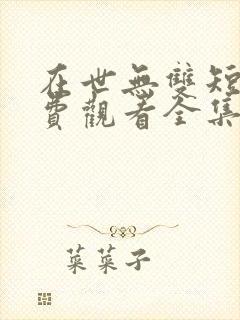 在世無雙短
費觀看全集
菜菜子